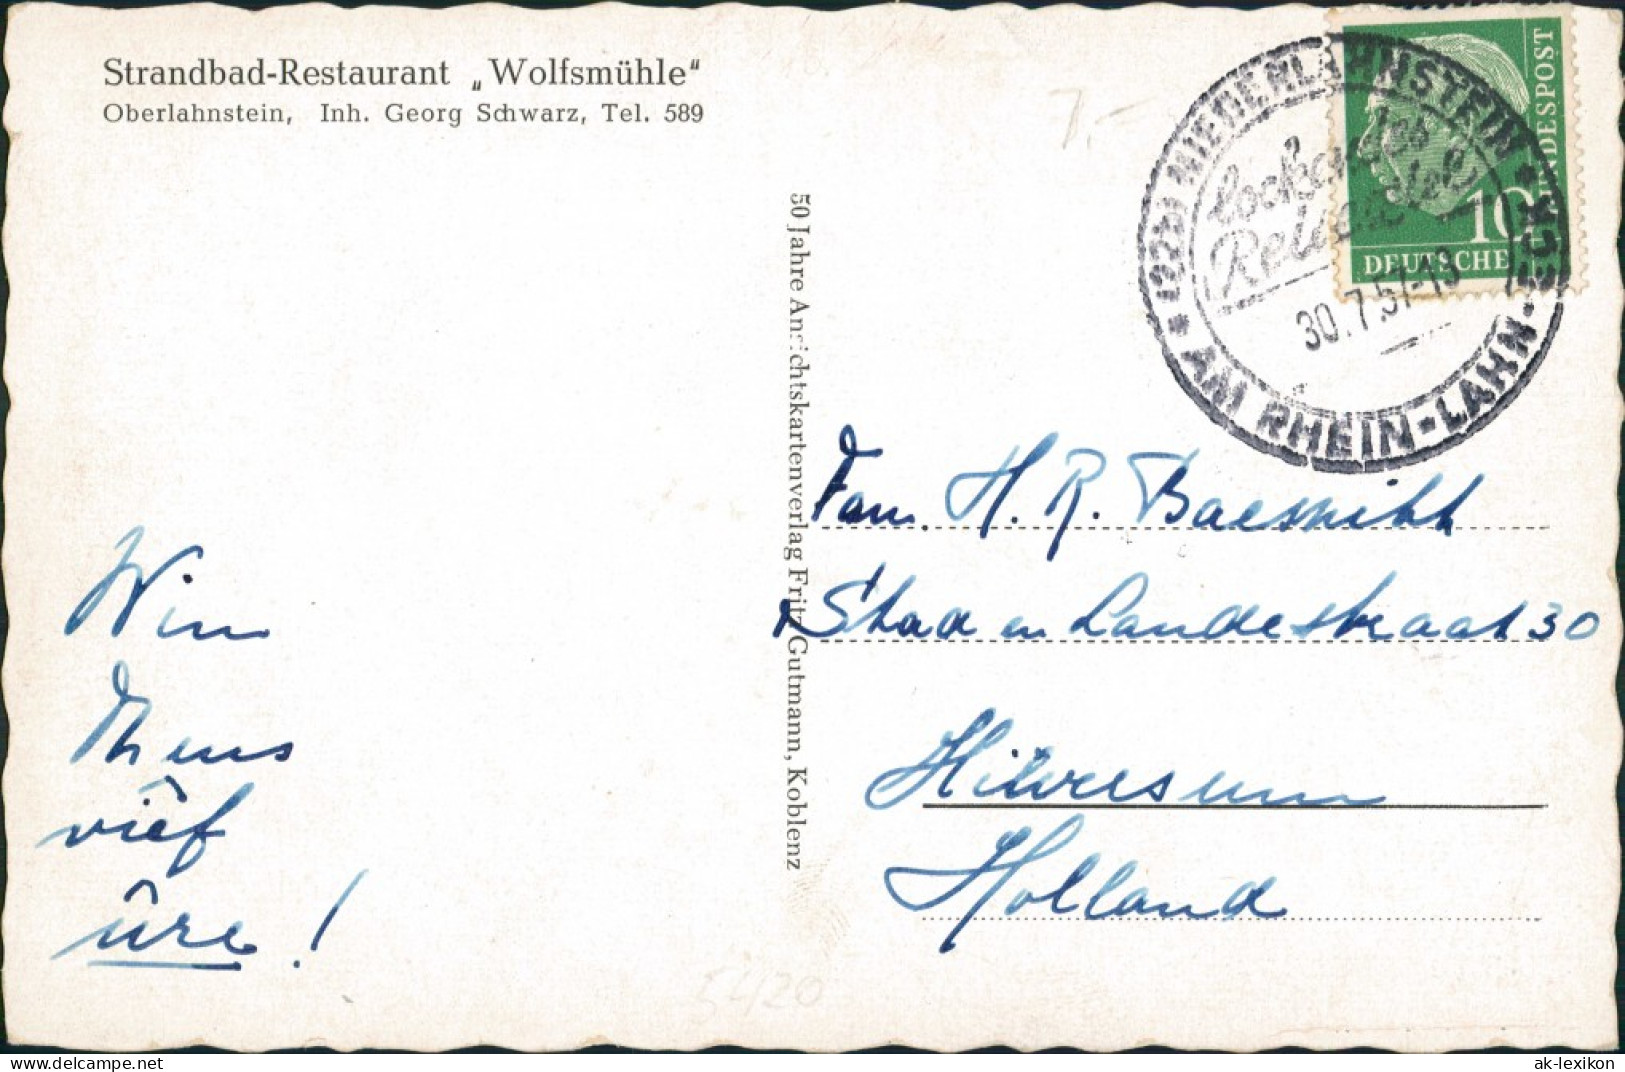 Strandbad-Restaurant „Wolfsmühle“
Oberlahnstein, Inh. Georg Schwarz, Tel. 589
7.-
DEUTSCHE BUNDESPOST
10
(22b) NIEDERLAHNSTEIN
AM RHEIN-LAHN-ECK
30.7.57-18
50 Jahre Ansichtskartenverlag Fritz Gutmann, Koblenz
Fam. H. R. Baesnitt
Stad en Landestraat 30
Hilversum
Holland
Wim
Theus
vief
üre!
5420
www.delcampe.net
ak-lexikon